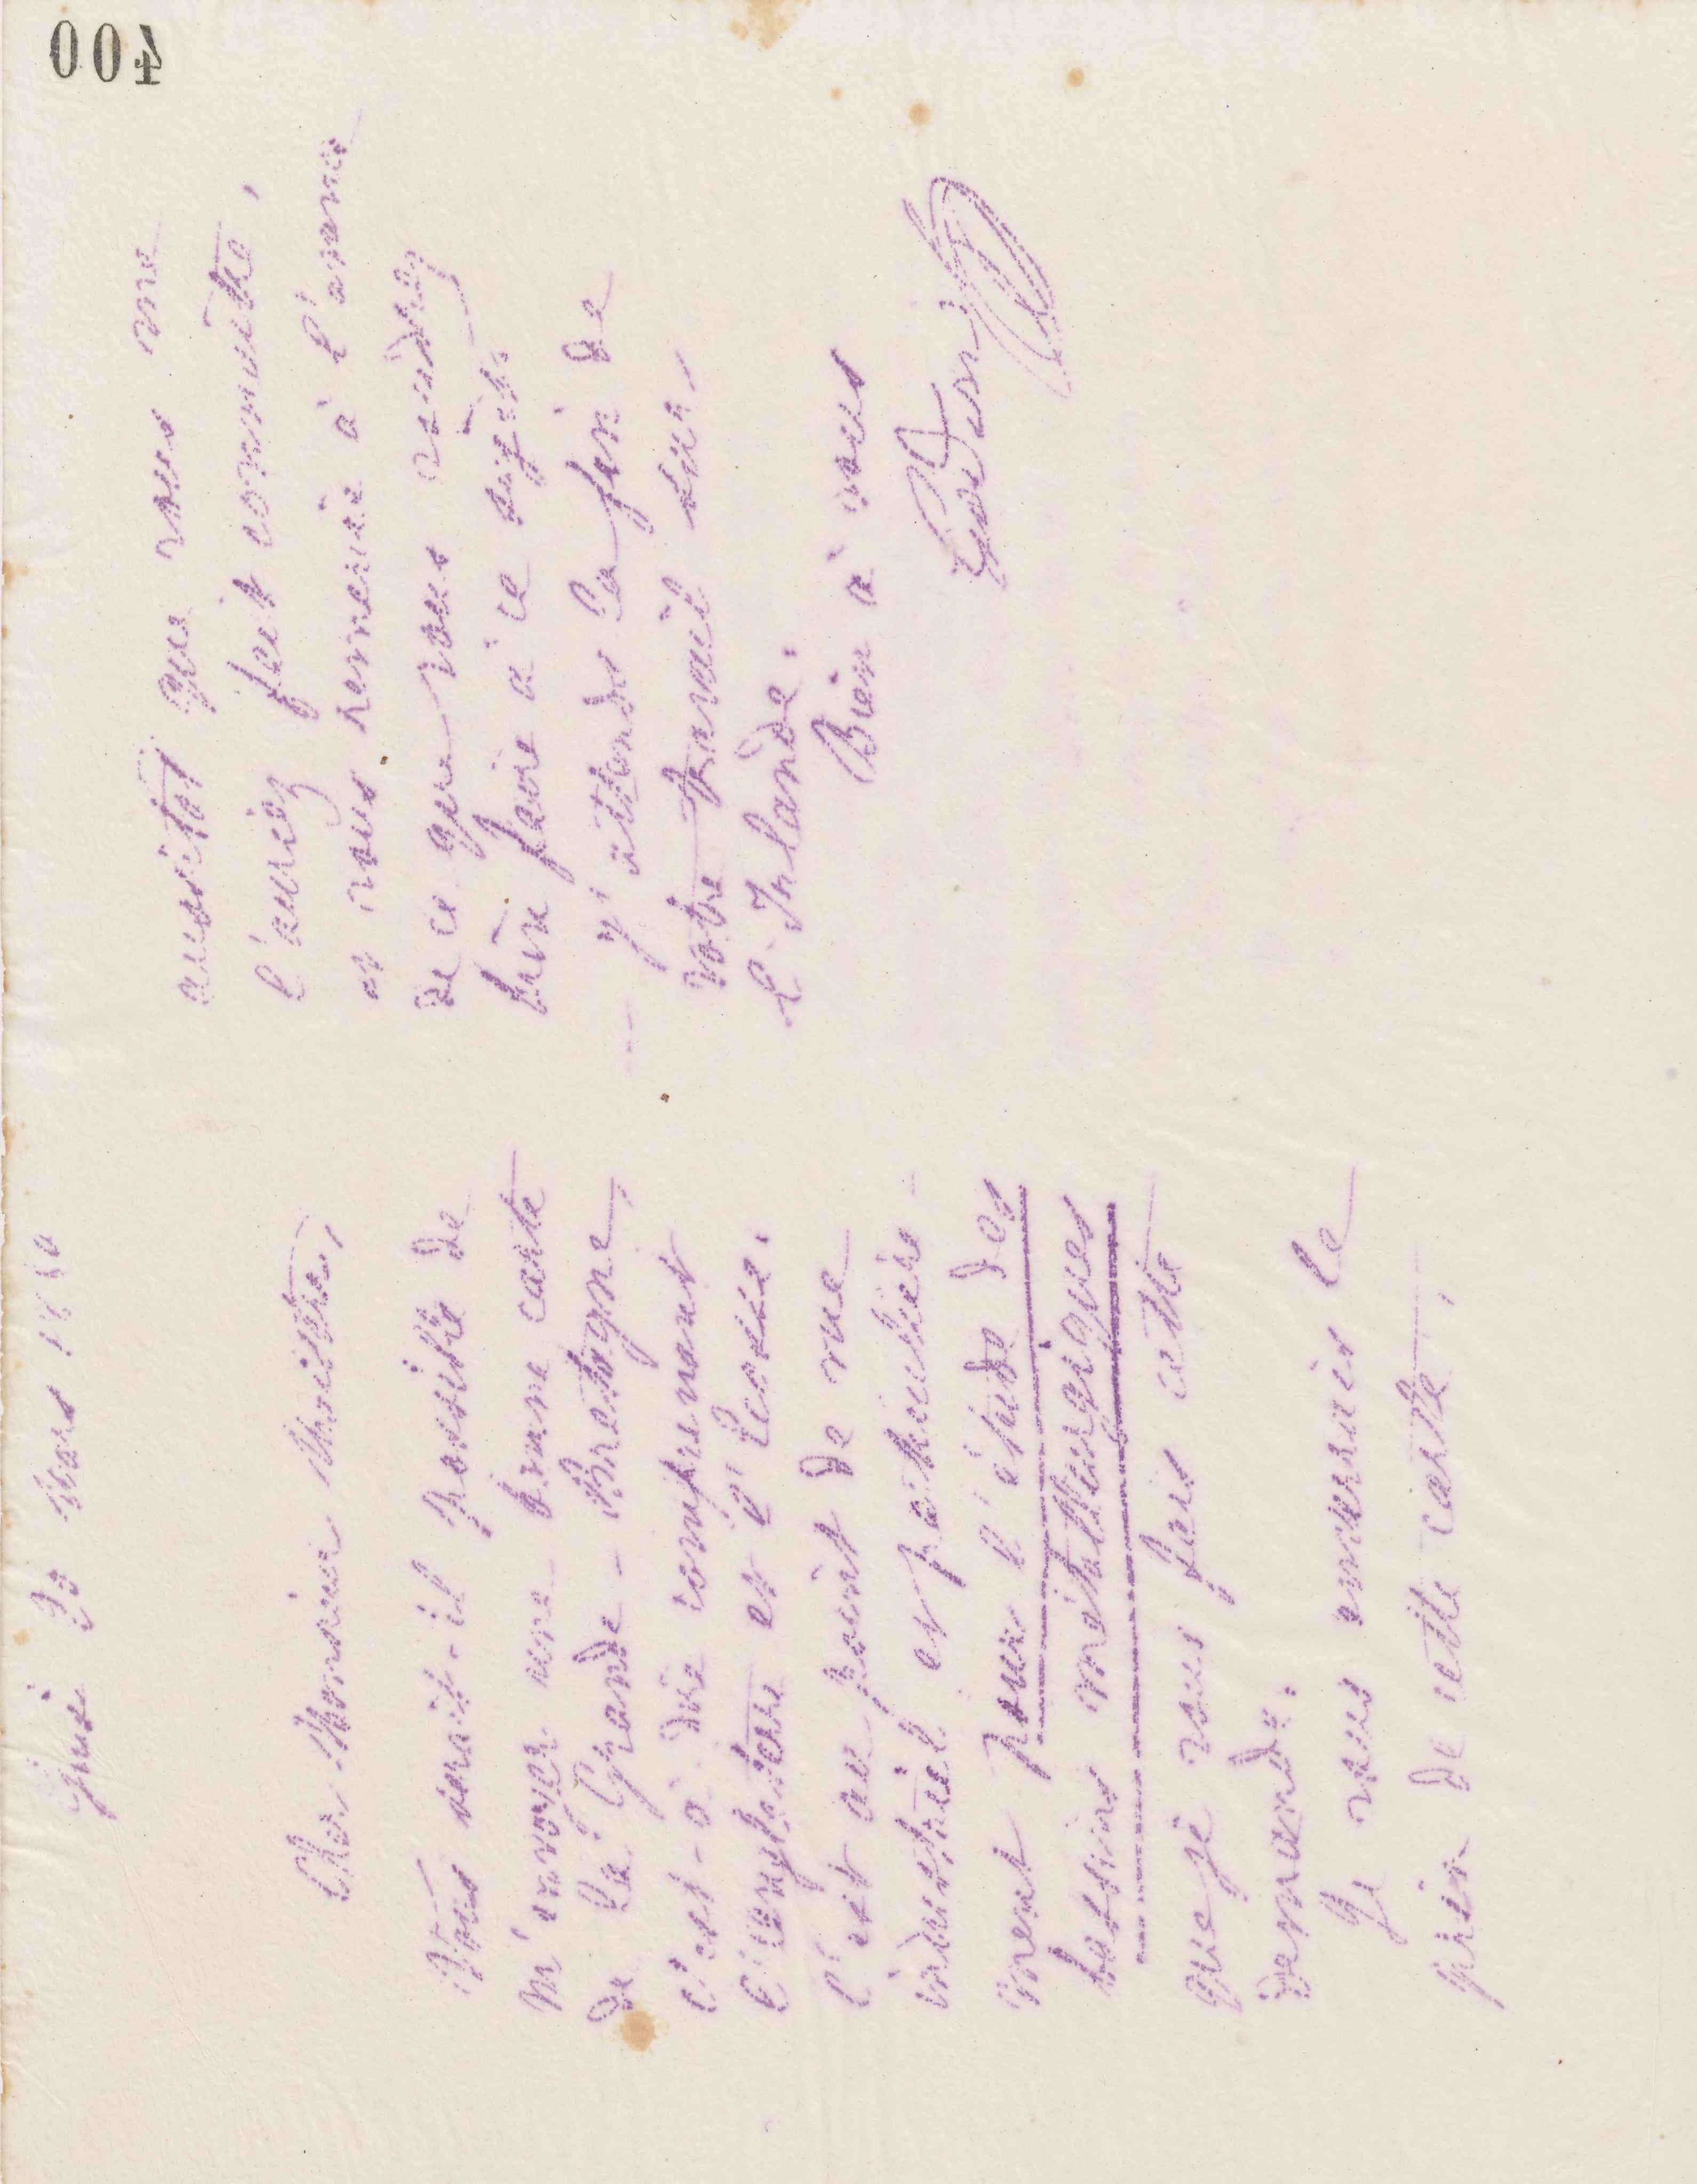 400
Guise 23 Mars 18
Cher Monsieur
Vous serait-il possible de
m'envoyer une bonne carte
de la Grande-Bretagne,
c'est-à dire comprenant
l'angleterre et l'Ecosse.
C'est au point de vue
industriel et particulière-
ment pour l'étude des
bassins métallurgiques
que je vous fais cette
demande.
Je vous enverrais le
prix de cette carte,
aussitôt que vous me
l'auriez fait connaître,
et vous remercie à l'avance
de ce que vous voudrez
bien faire à ce sujet.
J'attends la fin de
votre travail sur
l'Irlande.
Bien à vous
Godin